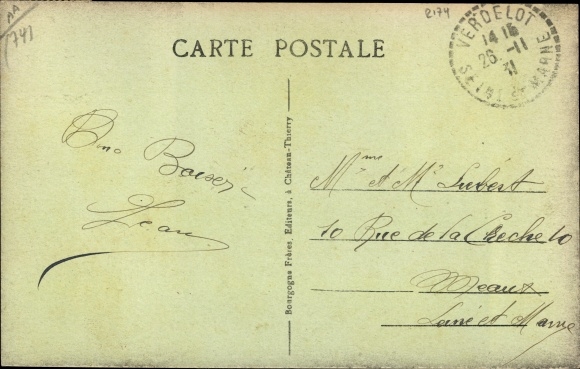 AA
(74)
2174
VERDELOT
14 15
26 - 11
31
SEINE ET MARNE
CARTE POSTALE
Bourgogne Frères, Editeurs, à Château-Thierry
Bons Baisers
Jean
Mme et Mr Lubert
10 Rue de la Creche 10
Meaux
Seine et Marne